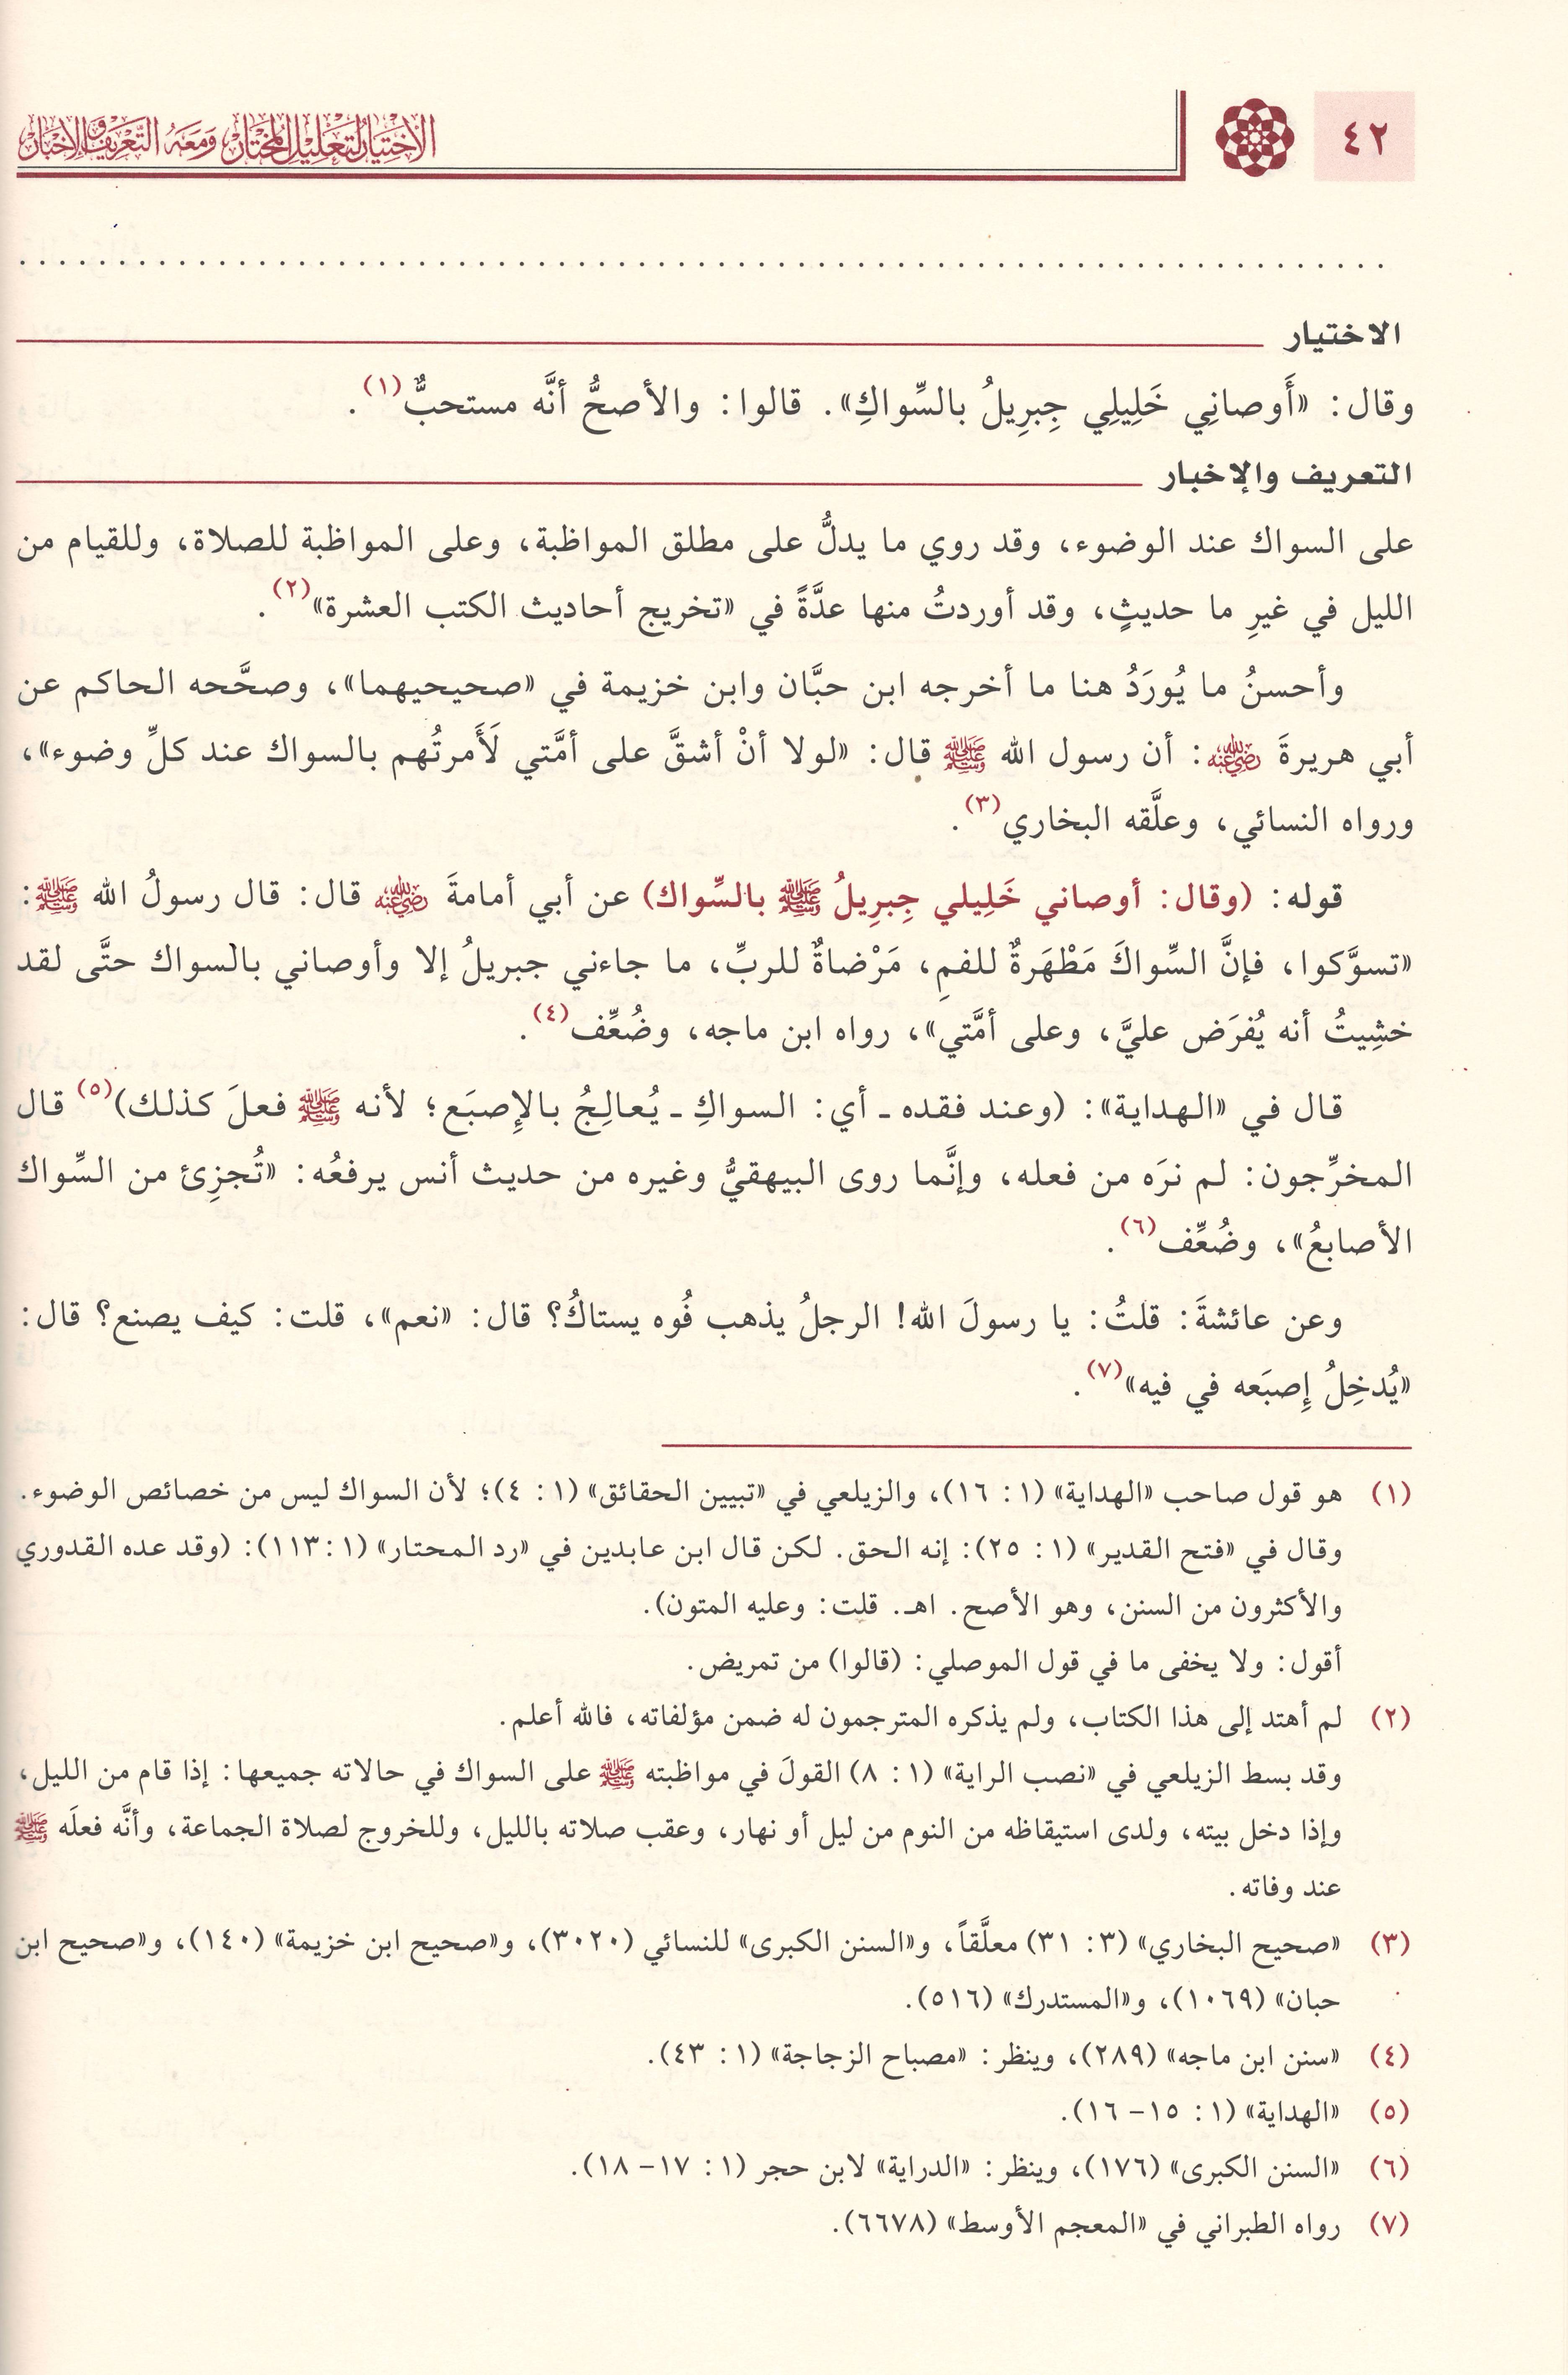 ٤٢
الاختيار لتعليل المختار ومعه التعريف والإخبار
. . . . . . . . . . . . . . . . . . . . . . . . . . . . . . . . . . . . . . . . . . . . . . . . . . . . . . . . . . . . . . . . . . . . .
الاختيار
وقال: «أَوصانِي خَلِيلِي جِبرِيلُ بالسِّواكِ». قالوا: والأصحُّ أنَّه مستحبٌّ(١).
التعريف والإخبار
على السواك عند الوضوء، وقد روي ما يدلُّ على مطلق المواظبة، وعلى المواظبة للصلاة، وللقيام من
الليل في غيرِ ما حديثٍ، وقد أوردتُ منها عدَّةً في «تخريج أحاديث الكتب العشرة»(٢).
وأحسنُ ما يُورَدُ هنا ما أخرجه ابن حبَّان وابن خزيمة في «صحيحيهما»، وصحَّحه الحاكم عن
أبي هريرةَ رضي الله عنه: أن رسول الله ﷺ قال: «لولا أنْ أشقَّ على أمَّتي لَأَمرتُهم بالسواك عند كلِّ وضوء»،
ورواه النسائي، وعلَّقه البخاري(٣).
قوله: (وقال: أوصاني خَلِيلي جِبرِيلُ ﷺ بالسِّواك) عن أبي أمامةَ رضي الله عنه قال: قال رسولُ الله ﷺ:
«تسوَّكوا، فإنَّ السِّواكَ مَطْهَرةٌ للفمِ، مَرْضاةٌ للربِّ، ما جاءني جبريلُ إلا وأوصاني بالسواك حتَّى لقد
خشِيتُ أنه يُفرَض عليَّ، وعلى أمَّتي»، رواه ابن ماجه، وضُعِّف(٤).
قال في «الهداية»: (وعند فقده ـ أي: السواكِ ـ يُعالِجُ بالإِصبَع؛ لأنه ﷺ فعلَ كذلك)(٥) قال
المخرِّجون: لم نرَه من فعله، وإنَّما روى البيهقيُّ وغيره من حديث أنس يرفعُه: «تُجزِئ من السِّواك
الأصابعُ»، وضُعِّف(٦).
وعن عائشةَ: قلتُ: يا رسولَ الله! الرجلُ يذهب فُوه يستاكُ؟ قال: «نعم»، قلت: كيف يصنع؟ قال:
«يُدخِلُ إِصبَعه في فيه»(٧).
(١) هو قول صاحب «الهداية» (١: ١٦)، والزيلعي في «تبيين الحقائق» (١: ٤)؛ لأن السواك ليس من خصائص الوضوء.
وقال في «فتح القدير» (١: ٢٥): إنه الحق. لكن قال ابن عابدين في «رد المحتار» (١: ١١٣): (وقد عده القدوري
والأكثرون من السنن، وهو الأصح. اهـ. قلت: وعليه المتون).
أقول: ولا يخفى ما في قول الموصلي: (قالوا) من تمريض.
(٢) لم أهتد إلى هذا الكتاب، ولم يذكره المترجمون له ضمن مؤلفاته، فالله أعلم.
وقد بسط الزيلعي في «نصب الراية» (١: ٨) القولَ في مواظبته ﷺ على السواك في حالاته جميعها: إذا قام من الليل،
وإذا دخل بيته، ولدى استيقاظه من النوم من ليل أو نهار، وعقب صلاته بالليل، وللخروج لصلاة الجماعة، وأنَّه فعلَه ﷺ
عند وفاته.
(٣) «صحيح البخاري» (٣: ٣١) معلَّقاً، و«السنن الكبرى» للنسائي (٣٠٢٠)، و«صحيح ابن خزيمة» (١٤٠)، و«صحيح ابن
حبان» (١٠٦٩)، و«المستدرك» (٥١٦).
(٤) «سنن ابن ماجه» (٢٨٩)، وينظر: «مصباح الزجاجة» (١: ٤٣).
(٥) «الهداية» (١: ١٥ – ١٦).
(٦) «السنن الكبرى» (١٧٦)، وينظر: «الدراية» لابن حجر (١: ١٧ – ١٨).
(٧) رواه الطبراني في «المعجم الأوسط» (٦٦٧٨).